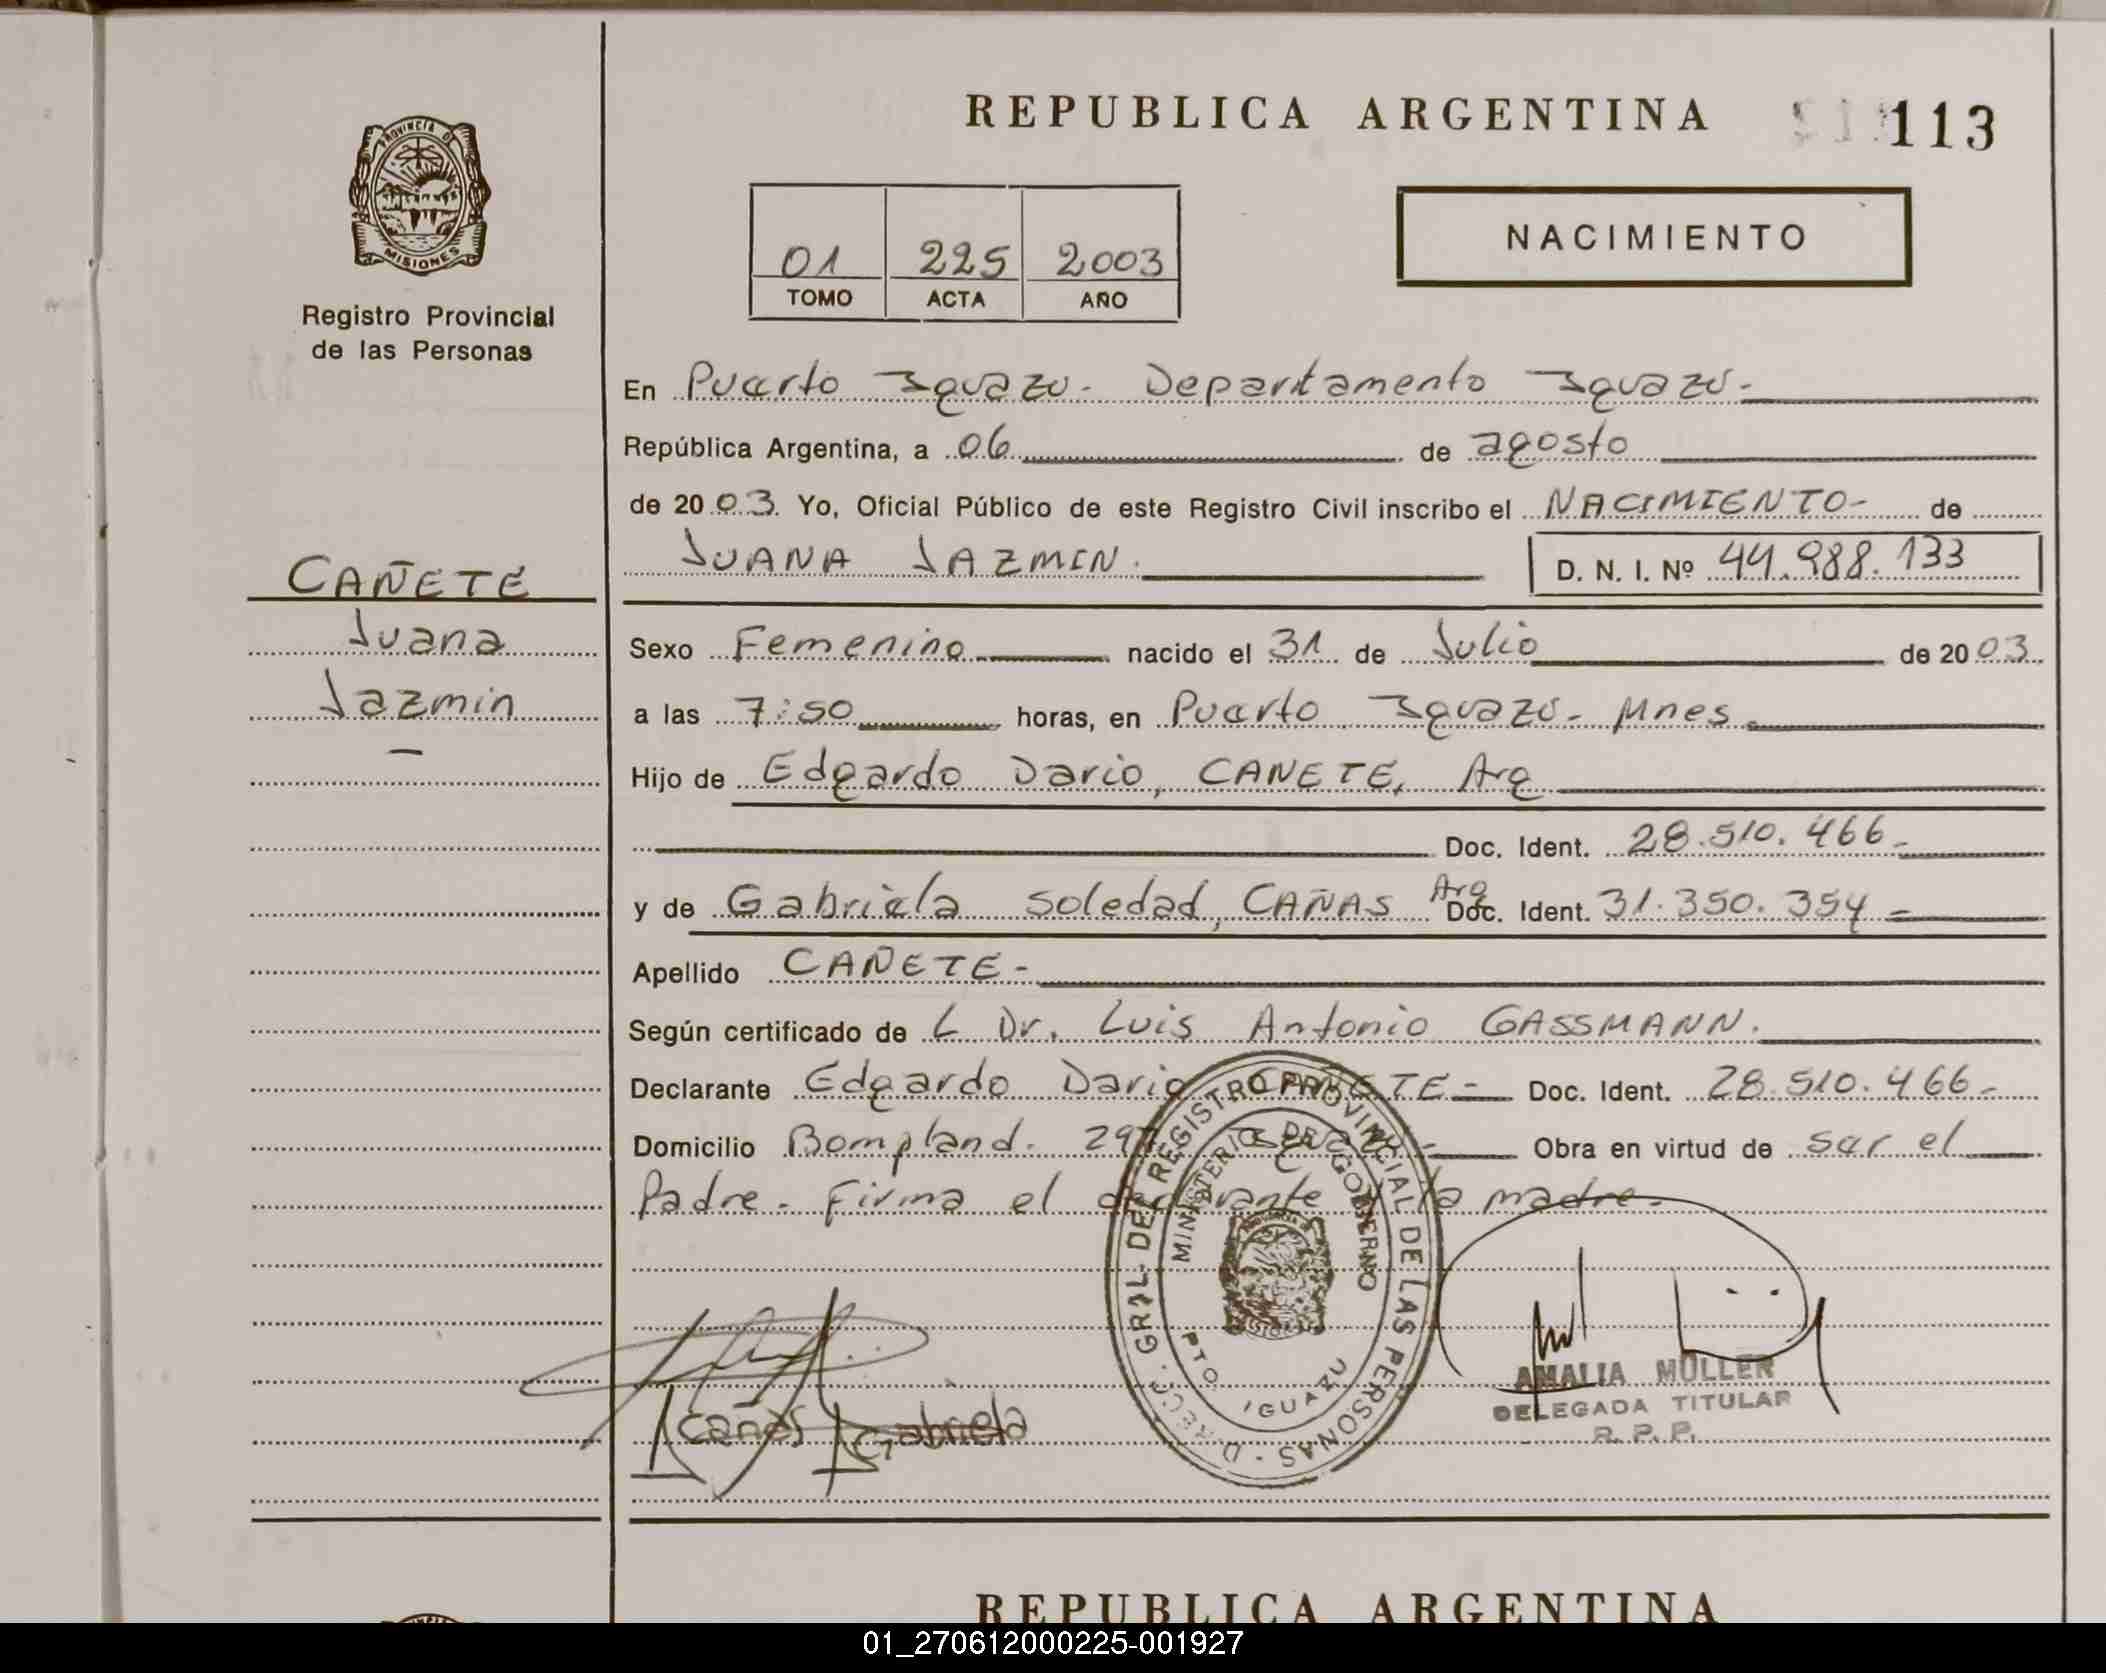 REPUBLICA ARGENTINA
113
PROVINCIA DE
MISIONES
Registro Provincial
de las Personas
01 225 2003
TOMO ACTA AÑO
NACIMIENTO
En Puerto Iguazú - Departamento Iguazú -
República Argentina, a 06 de agosto
de 20 03 Yo, Oficial Público de este Registro Civil inscribo el NACIMIENTO - de
JUANA JAZMIN. D. N. I. Nº 44.988.133
CAÑETE
Juana
Jazmin
-
Sexo Femenino nacido el 31 de Julio de 20 03
a las 7:50 horas, en Puerto Iguazú - Mnes.
Hijo de Edgardo Dario, CAÑETE, Arg
Doc. Ident. 28.510.466 -
y de Gabriela Soledad, CAÑAS Arg Doc. Ident. 31.350.354 -
Apellido CAÑETE -
Según certificado de L Dr. Luis Antonio GASSMANN.
Declarante Edgardo Dario CAÑETE - Doc. Ident. 28.510.466 -
Domicilio Bompland. Obra en virtud de ser el
Padre - Firma el declarante y la madre -
DIRECC. GRAL. DEL REGISTRO PROVINCIAL DE LAS PERSONAS -
MINISTERIO DE GOBIERNO
PTO. IGUAZU
Cañas Gabriela
AMALIA MÜLLER
DELEGADA TITULAR
R. P. P.
REPUBLICA ARGENTINA
01_270612000225-001927